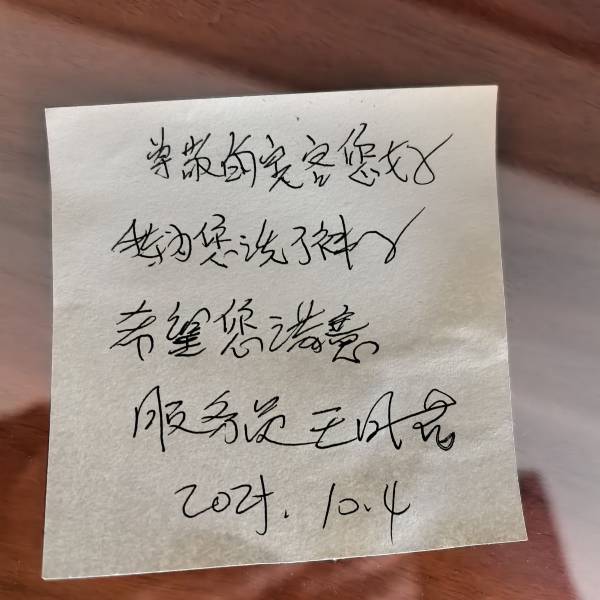 尊敬的宾客您好
我为您洗了袜子
希望您满意
服务员王凤
2025.10.4